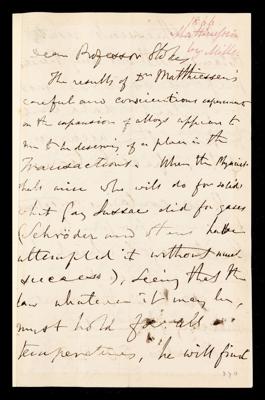 1866
Matthiessen
by Miller
Dear Professor Stokes
The results of Dr Matthiessen's
careful and conscientious experiments
on the expansion of alloys appear to
me to be deserving of a place in the
Transactions. When the Physicist
shall arise who will do for solids
what Gay Lussac did for gases
(Schröder and others have
attempted it without much
success), seeing that the
law whatever it may be,
must hold for all
temperatures, he will find